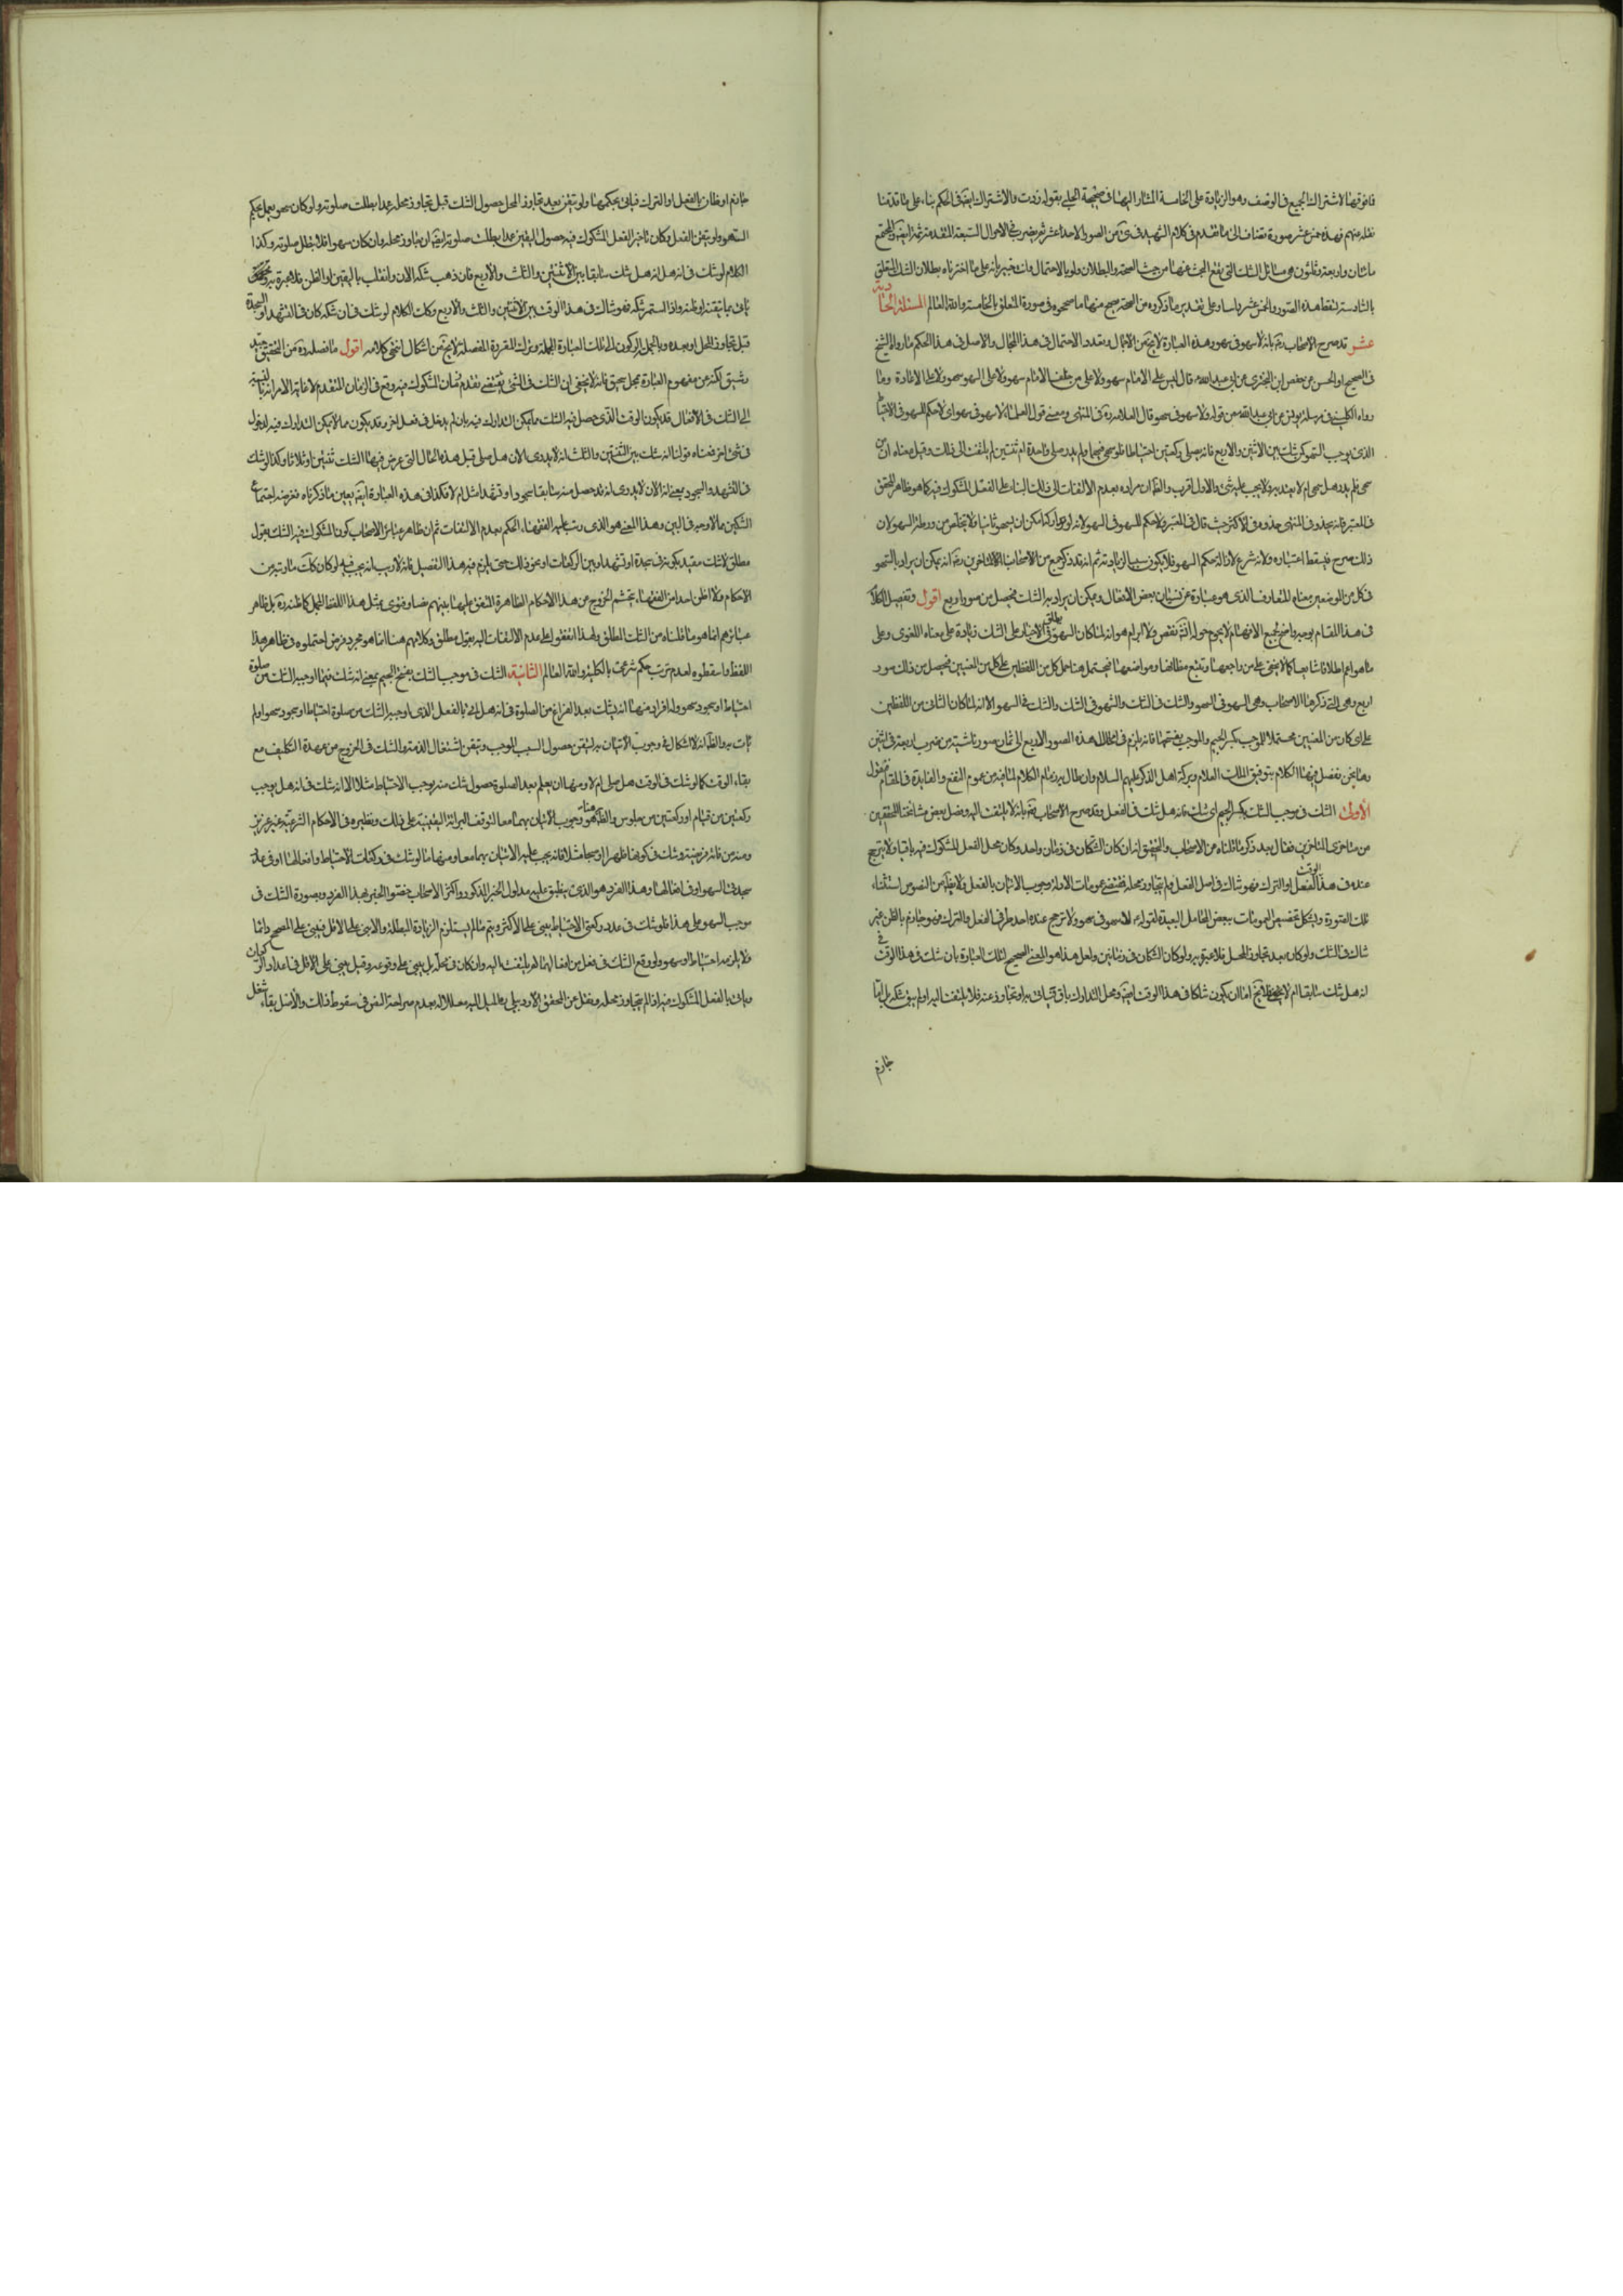 فما فوقها لاشتراك الجميع في الوصف وهو الزيادة على الخامسة المشار اليها في صحيحة الحلبي بقوله زدت والاشتراك ايضا في الحكم بناء على ما قدمنا
نقله عنهم فهذه خمس عشر صورة تضاف الى ما تقدم في كلام الشهيد
مائتان واربعة وثلثون هي مسائل الشك التي يقع البحث عنها من حيث الصحة والبطلان ولو بالاحتمال وانت خبير بانه على ما اخترناه ببطلان الشك المتعلق
بالسادسة تسقط هذه الصور الخمس عشر راسا وعلى تقدير ما ذكروه من الصحة يصح منها ما صححوه في صورة المتعلق بالخامسة والله العالم المسئلة الحادية
عشر قد صرح الاصحاب رض بانه لا سهو في سهو وهذه العبارة لا يخ من الاجمال وتعدد الاحتمال في هذا المجال والاصل في هذا الحكم ما رواه الشيخ
في الصحيح او الحسن عن حفص ابن البختري عن ابي عبد الله ع قال ليس على الامام سهو ولا على من خلف الامام سهو ولا على السهو سهو ولا على الاعادة اعادة وما
رواه الكليني في مرسلة يونس عن ابي عبد الله ع من قوله ولا سهو في سهو قال العلامة ره في المنتهى ومعنى قول العلماء لا سهو في سهو اي لا حكم للسهو في الاحتياط
الذي يوجبه السهو كمن شك بين الاثنين والاربع فانه يصلي ركعتين احتياطا فلو سهى فيهما ولم يدر صلى واحدة او ثنتين لم يلتفت الى ذلك وقيل معناه ان من
سهى فلم يدر هل سهى ام لا لا يعتد به ولا يجب عليه شئ والاول اقرب والظ ان مراده بعدم الالتفات الى ذلك البناء على الفعل المشكوك فيه كما هو ظاهر المحقق
في المعتبر فانه يحذو في المنتهى حذوه في الاكثر حيث قال في المعتبر ولا حكم للسهو في السهو لانه لو تداركه امكن ان يسهو ثانيا فلا يتخلص من ورطة السهو ولان
ذلك حرج فيسقط اعتباره ولانه شرع لازالة حكم السهو فلا يكون سببا لزيادته ثم انه قد ذكر جمع من الاصحاب المتاخرين رض انه يمكن ان يراد بالسهو
في كل من الموضعين معناه المتعارف الذي هو عبارة عن نسيان بعض الافعال ويمكن ان يراد به الشك فيحصل من صور اربع اقول وتفصيل الكلام
في هذا المقام بوجه واضح لجميع الافهام لا يحوم حوله انش نقض ولا ابرام هو انه لما كان السهو يطلق في الاخبار على الشك زيادة على معناه اللغوي وعلى
ما هو اعم اطلاقا شايعا كما لا يخفى على من راجعها وتتبع مظانها ومواضعها فيحتمل هنا حمل كل من اللفظين على كل من المعنيين فيحصل من ذلك صور
اربع وهي التي ذكرها الاصحاب وهي السهو في السهو والشك في الشك والسهو في الشك والشك في السهو الا انه لما كان الثاني من اللفظين
على اي كان من المعنيين محتملا للموجب بكسر الجيم والموجب بفتحها فانه يلزم في ذلك هذه الصور الاربع الى ثمان صور ناشئة من ضرب اربعة في اثنين
وها نحن نفصل فيها الكلام بتوفيق الملك العلام وبركة اهل الذكر عليهم السلام وان طال به زمام الكلام لما فيه من عموم النفع والفايدة في المقام فنقول
الاولى الشك في موجب الشك بكسر الجيم اي شك في انه هل شك في الفعل وقد صرح الاصحاب رض بانه لا يلتفت اليه وفصل بعض مشايخنا المحققين
من متاخري المتاخرين فقال بعد ذكر ما قلناه عن الاصحاب والتحقيق انه ان كان الشكان في زمان واحد وكان محل الفعل المشكوك فيه باقيا ولا يترجح
عنده في هذا الوقت الفعل او الترك فهو شاك في اصل الفعل ولم يتجاوز محله فمقتضى عمومات الادلة وجوب الاتيان بالفعل ولا يظهر من النصوص استثناء
تلك الصورة ويشكل تخصيص العمومات ببعض المحامل البعيدة لقوله ع لا سهو في سهو ولا ترجح عنده احد طرفي الفعل والترك فهو جازم بالظن غير
شاك في الشك ولو كان بعد تجاوز المحل فلا عبرة به ولو كان الشكان في زمانين ولعل هذا هو المعنى الصحيح لتلك العبارة بان شك في هذا الوقت في
انه هل شك سابقا ام لا فلا يخ اما ان يكون شاكا في هذا الوقت ايضا ومحل التدارك باق فياتي به او تجاوز عنه فلا يلتفت اليه او لم يبق شكه بل اما
جازم
جازم او ظان بالفعل او الترك فياتي بحكمهما ولو تيقن بعد تجاوز المحل حصول الشك قبل تجاوز محله عمدا بطلت صلوته ولو كان سهوا يعمل بحكم
السهو ولو تيقن الفعل وكان تاخير الفعل المشكوك فيه حصول اليقين عمدا بطلت صلوته ايضا ان تجاوز محله وان كان سهوا فلا تبطل صلوته وكذا
الكلام لو شك في انه هل شك سابقا بين الاثنتين والثلث والاربع فان ذهب شكه الان وانقلب باليقين او الظن فلا عبرة به
ياتي بما تيقنه او ظنه واذا استمر شكه فهو شاك في هذا الوقت بين الاثنتين والثلث والاربع وكذا الكلام لو شك في ان شكه كان في التشهد او السجدة
قبل تجاوز المحل او بعده وبالجملة الركون الى تلك العبارة المجملة وترك القواعد المقررة المفصلة لا يخ من اشكال انتهى كلامه اقول ما فصله ره من التحقيق جيد
رشيق لكنه عن مفهوم العبارة بمعزل سحيق فانه لا يخفى ان الشك في الشئ يقتضي تقدم زمان المشكوك فيه ووقوعه في الزمان المتقدم
الى الشك في الافعال قد يكون الوقت الذي حصل فيه الشك مما يمكن التدارك فيه بان لم يدخل في فعل اخر وقد يكون مما لا يمكن التدارك فيه لدخوله
في شئ اخر فمعناه قولنا انه شك بين الثنتين والثلث انه لا يدري الان هل صلى قبل هذه الحال التي عرض فيها الشك ثنتين او ثلاثا وكذا لو شك
في التشهد والسجود بمعنى انه الان لا يدري انه قد حصل منه سابقا سجود او تشهد مثلا ام لا فكذا في هذه العبارة ايضا بعين ما ذكرناه ففرضه اجتماع
الشكين مما لا وجه له في البين وهذا المعنى هو الذي رتب عليه الفقهاء الحكم بعدم الالتفات ثم ان ظاهر عبائر الاصحاب كون المشكوك فيه الشك بقول
مطلق لا شك مقيد بكونه في سجدة او تشهد او بين الركعات او نحو ذلك حتى يلزم فيه هذا التفصيل فانه لا ريب انه يجب فيه لو كان كذلك ما رتبه من
الاحكام ولا اظن احدا من الفقهاء يتجشم الخروج عن هذه الاحكام الظاهرة المتفق عليها بينهم نصا وفتوى بمثل هذا اللفظ المجمل كما ظنه ره بل ظاهر
عبائرهم انما هو ما قلناه من الشك المطلق ولهذا اتفقوا على عدم الالتفات اليه بقول مطلق وكلامهم هنا انما هو مجرد فرض احتملوه في ظاهر هذا
اللفظ واسقطوه لعدم ترتب حكم شرعي عليه بالكلية والله العالم الثانية الشك في موجب الشك بفتح الجيم بمعنى انه شك فيما اوجبه الشك من صلوة
احتياط او سجود سهو وله افراد منها انه شك بعد الفراغ من الصلوة في انه هل اتى بالفعل الذي اوجبه الشك من صلوة احتياط او سجود سهو او لم
يات به والظ انه لا اشكال في وجوب الاتيان به لتيقن حصول السبب الموجب وتيقن اشتغال الذمة والشك في الخروج من عهدة التكليف مع
بقاء الوقت كما لو شك في الوقت هل صلى ام لا ومنها ان يعلم بعد الصلوة حصول شك منه يوجب الاحتياط مثلا الا انه شك في انه هل يوجب
ركعتين من قيام او ركعتين من جلوس والظ هنا هو وجوب الاتيان بهما معا لتوقف البرائة اليقينية على ذلك ونظيره في الاحكام الشرعية غير عزيز
ومنه من فاته فريضة وشك في كونها ظهرا او صبحا مثلا فانه يجب عليه الاتيان بهما معا ومنها ما لو شك في ركعات الاحتياط وافعالها او في عدد
سجدتي السهو او في افعالهما وهذا الفرد هو الذي ينطبق عليه مدلول الخبر المذكور واكثر الاصحاب خصوا الخبر بهذا الفرد وبصورة الشك في
موجب السهو وعلى هذا فلو شك في عدد ركعتي الاحتياط يبني على الاكثر ويتم ما لم يستلزم الزيادة المبطلة والا بنى على الاقل فيبني على المصحح دائما
فلا يلزمه احتياط او سهو ولو وقع الشك في فعل من افعالهما لم يلتفت اليه وان كان في محله بل يبني على وقوعه وقيل يبني على الاقل في اعداد الركعات
وياتي بالفعل المشكوك فيه اذا لم يتجاوز محله ونقل عن المحقق الاردبيلي ره الميل اليه معللا له بعدم صراحة النص في سقوط ذلك والاصل بقاء شغل